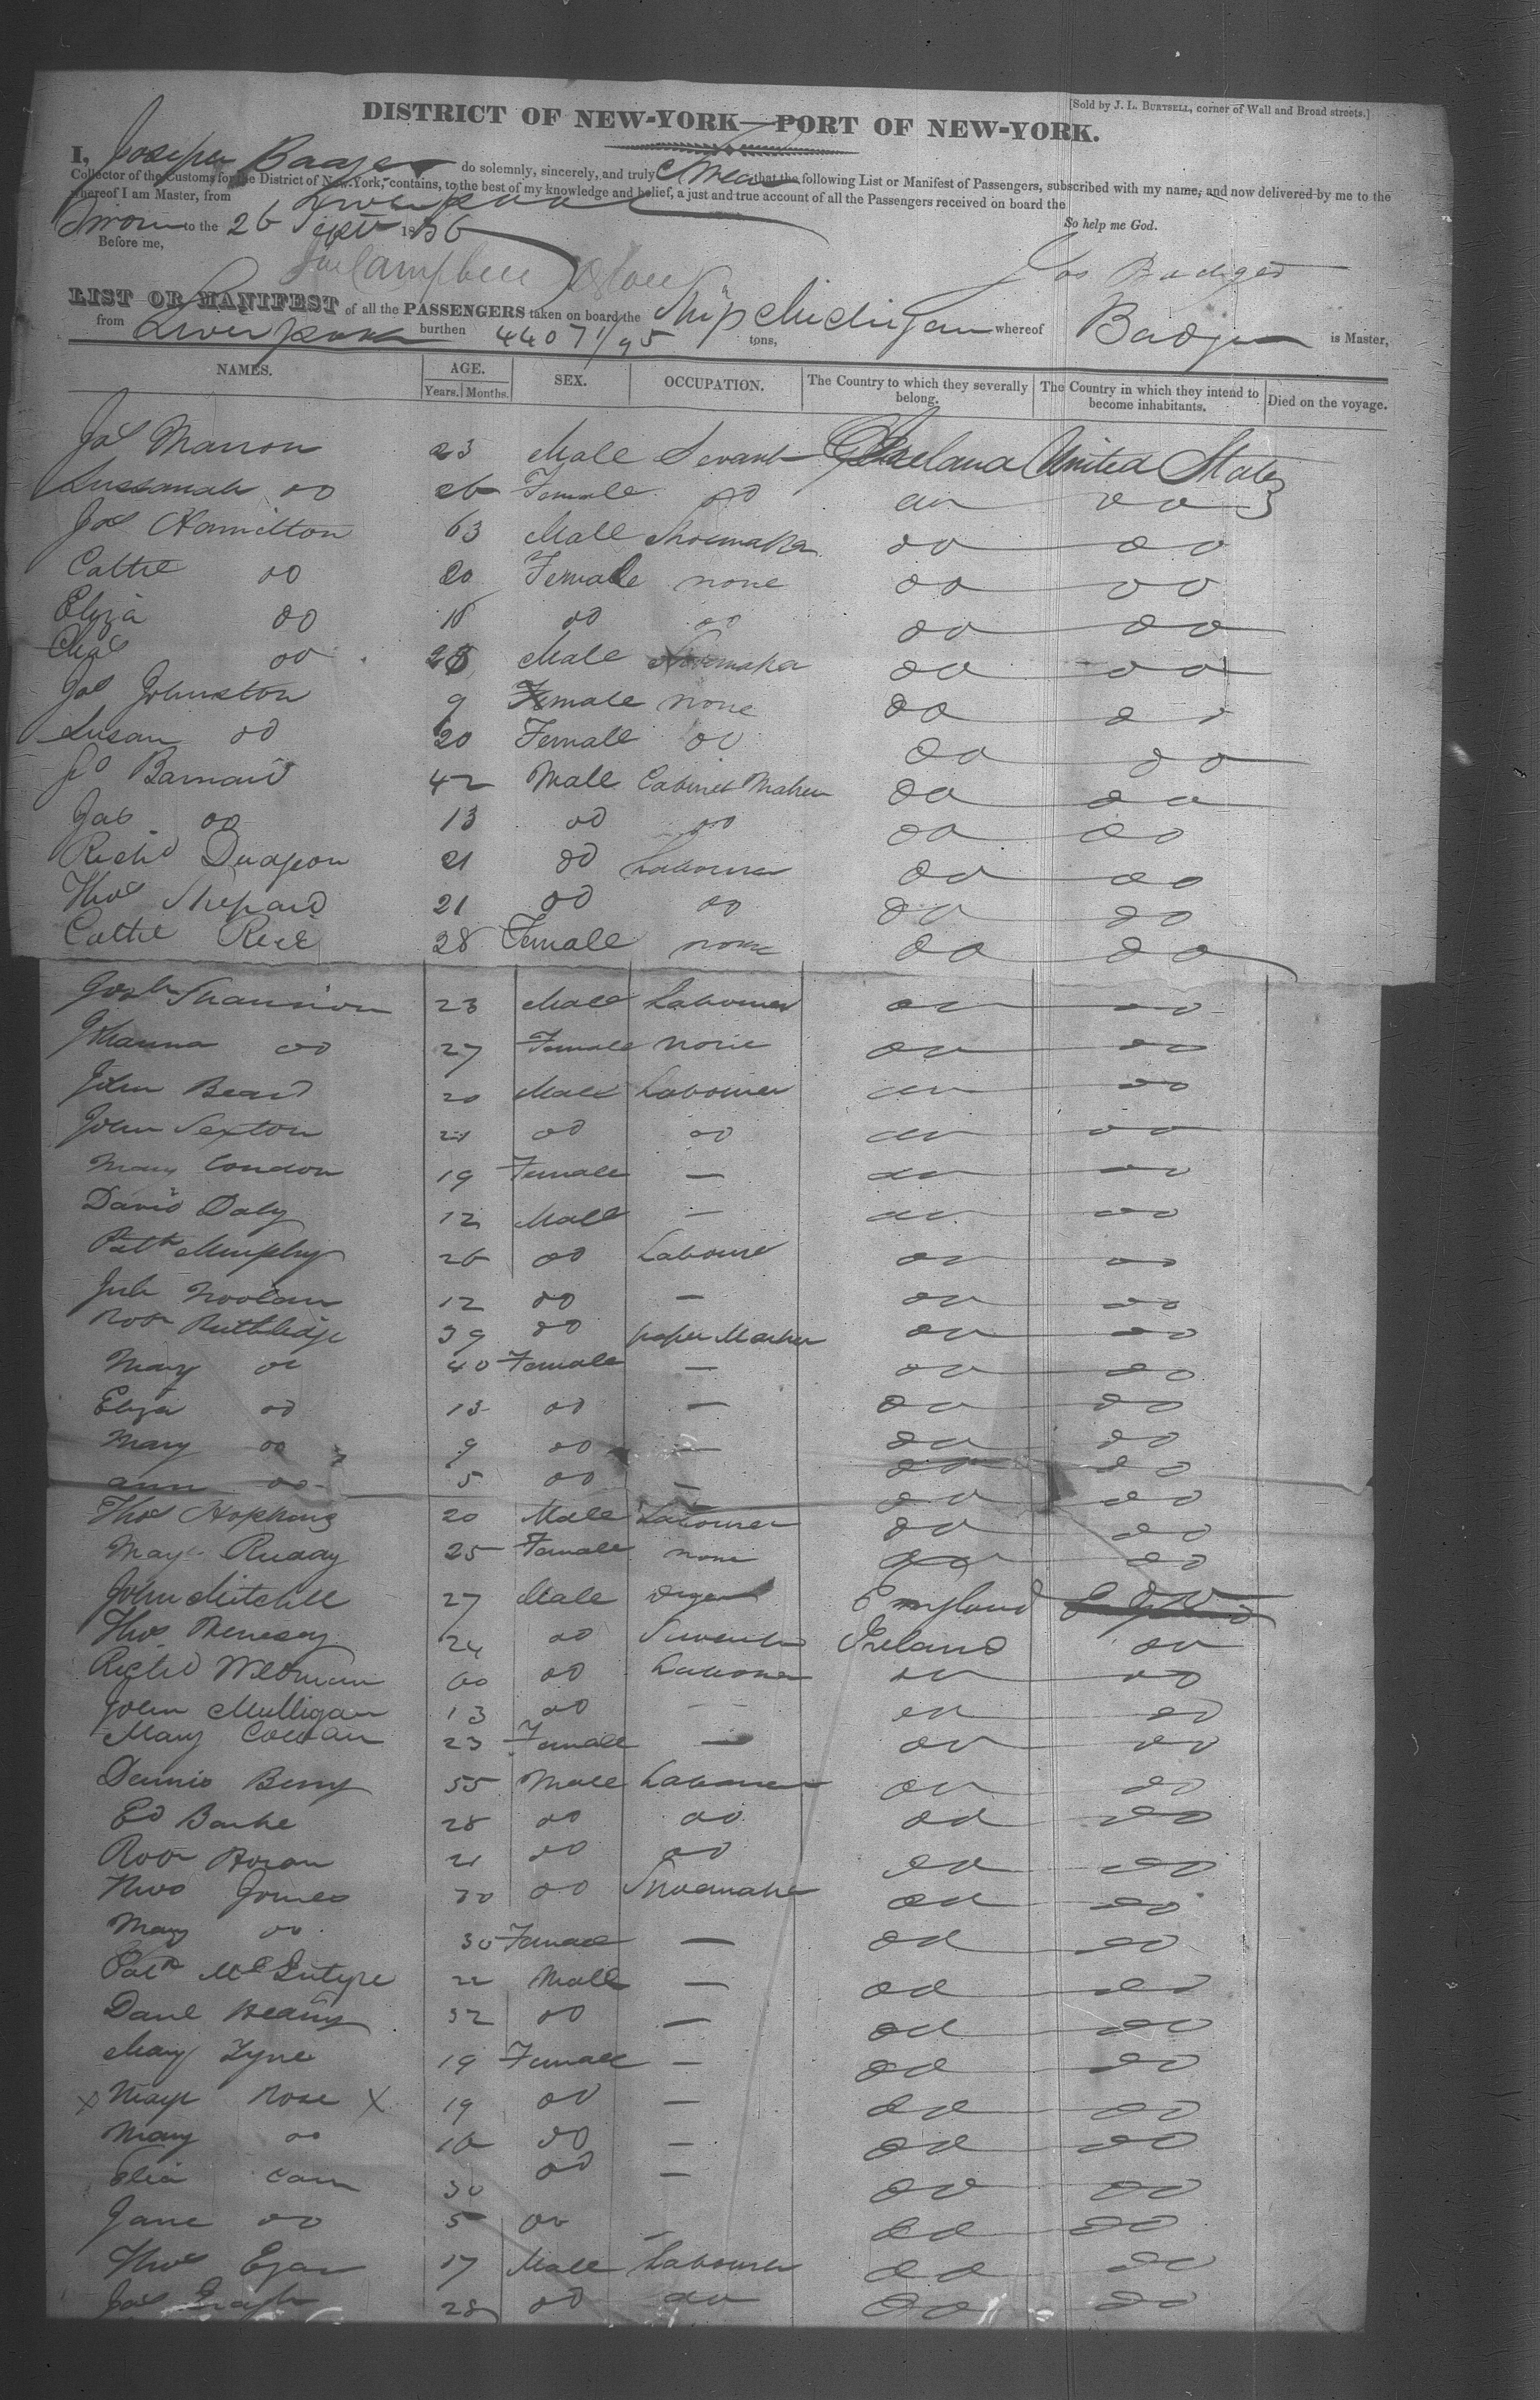 [Sold by J. L. BURTSELL, corner of Wall and Broad streets.]
DISTRICT OF NEW-YORK—PORT OF NEW-YORK.
I, Joseph Badger do solemnly, sincerely, and truly swear that the following List or Manifest of Passengers, subscribed with my name, and now delivered by me to the
Collector of the Customs for the District of New-York, contains, to the best of my knowledge and belief, a just and true account of all the Passengers received on board the
whereof I am Master, from Liverpool
Sworn to the 26 Sept 1836 So help me God.
Before me,
Campbell Jos Badger
LIST OR MANIFEST of all the PASSENGERS taken on board the Ship Michigan whereof Badger is Master,
from Liverpool burthen tons,
NAMES. AGE. SEX. OCCUPATION. The Country to which they severally belong. The Country in which they intend to become inhabitants. Died on the voyage.
Years. Months.
Jas Marron 23 Male Servant Ireland United States
Sussanah do 26 Female do do do
Jas Hamilton 63 Male Shoemaker do do
Cathe do 20 Female none do do
Eliza do 18 do do do do
Chas do Male Shoemaker do do
Jas Johnston 9 male none do do
Susan do 20 Female do do do
Jo Barnard 42 Male Cabinet Maker do do
Jas do 13 do do do do
Richd Dudgeon 21 do Labourer do do
Thos Shepard 21 do do do do
Cathe Rice 28 Female none do do
Shannon 23 Male Labourer do do
Johanna do 27 Female none do do
John Beard 20 Male Labourer do do
John Sexton 21 do do do do
Mary Condon 19 Female — do do
David Daly 12 Male — do do
Patk Murphy 26 do Labourer do do
Noolan 12 do — do do
Robt Ruthledge 39 do paper Maker do do
Mary do 40 Female — do do
Eliza do 13 do — do do
Mary do 9 do — do do
Ann do 5 do — do do
Thos Hopkins 20 Male Labourer do do
Ruddy 25 Female none do do
John Mitchell 27 Male England
Thos 24 do Servant Ireland do
Richd Wildman 60 do Labourer do do
John Mulligan 13 do — do do
Mary Cowan 23 Female — do do
Dennis Berry 55 Male Labourer do do
Ed Burke 28 do do do do
Robt Horan 21 do do do do
Thos Jones 30 do Shoemaker do do
Mary do 30 Female — do do
Patk McIntyre 22 Male — do do
Danl 32 do — do do
Mary Lyne 19 Female — do do
X Rose X 19 do — do do
Mary do 16 do — do do
30 do — do do
Jane do 5 do — do do
Thos Egan 17 Male Labourer do do
Jas 28 do do do do